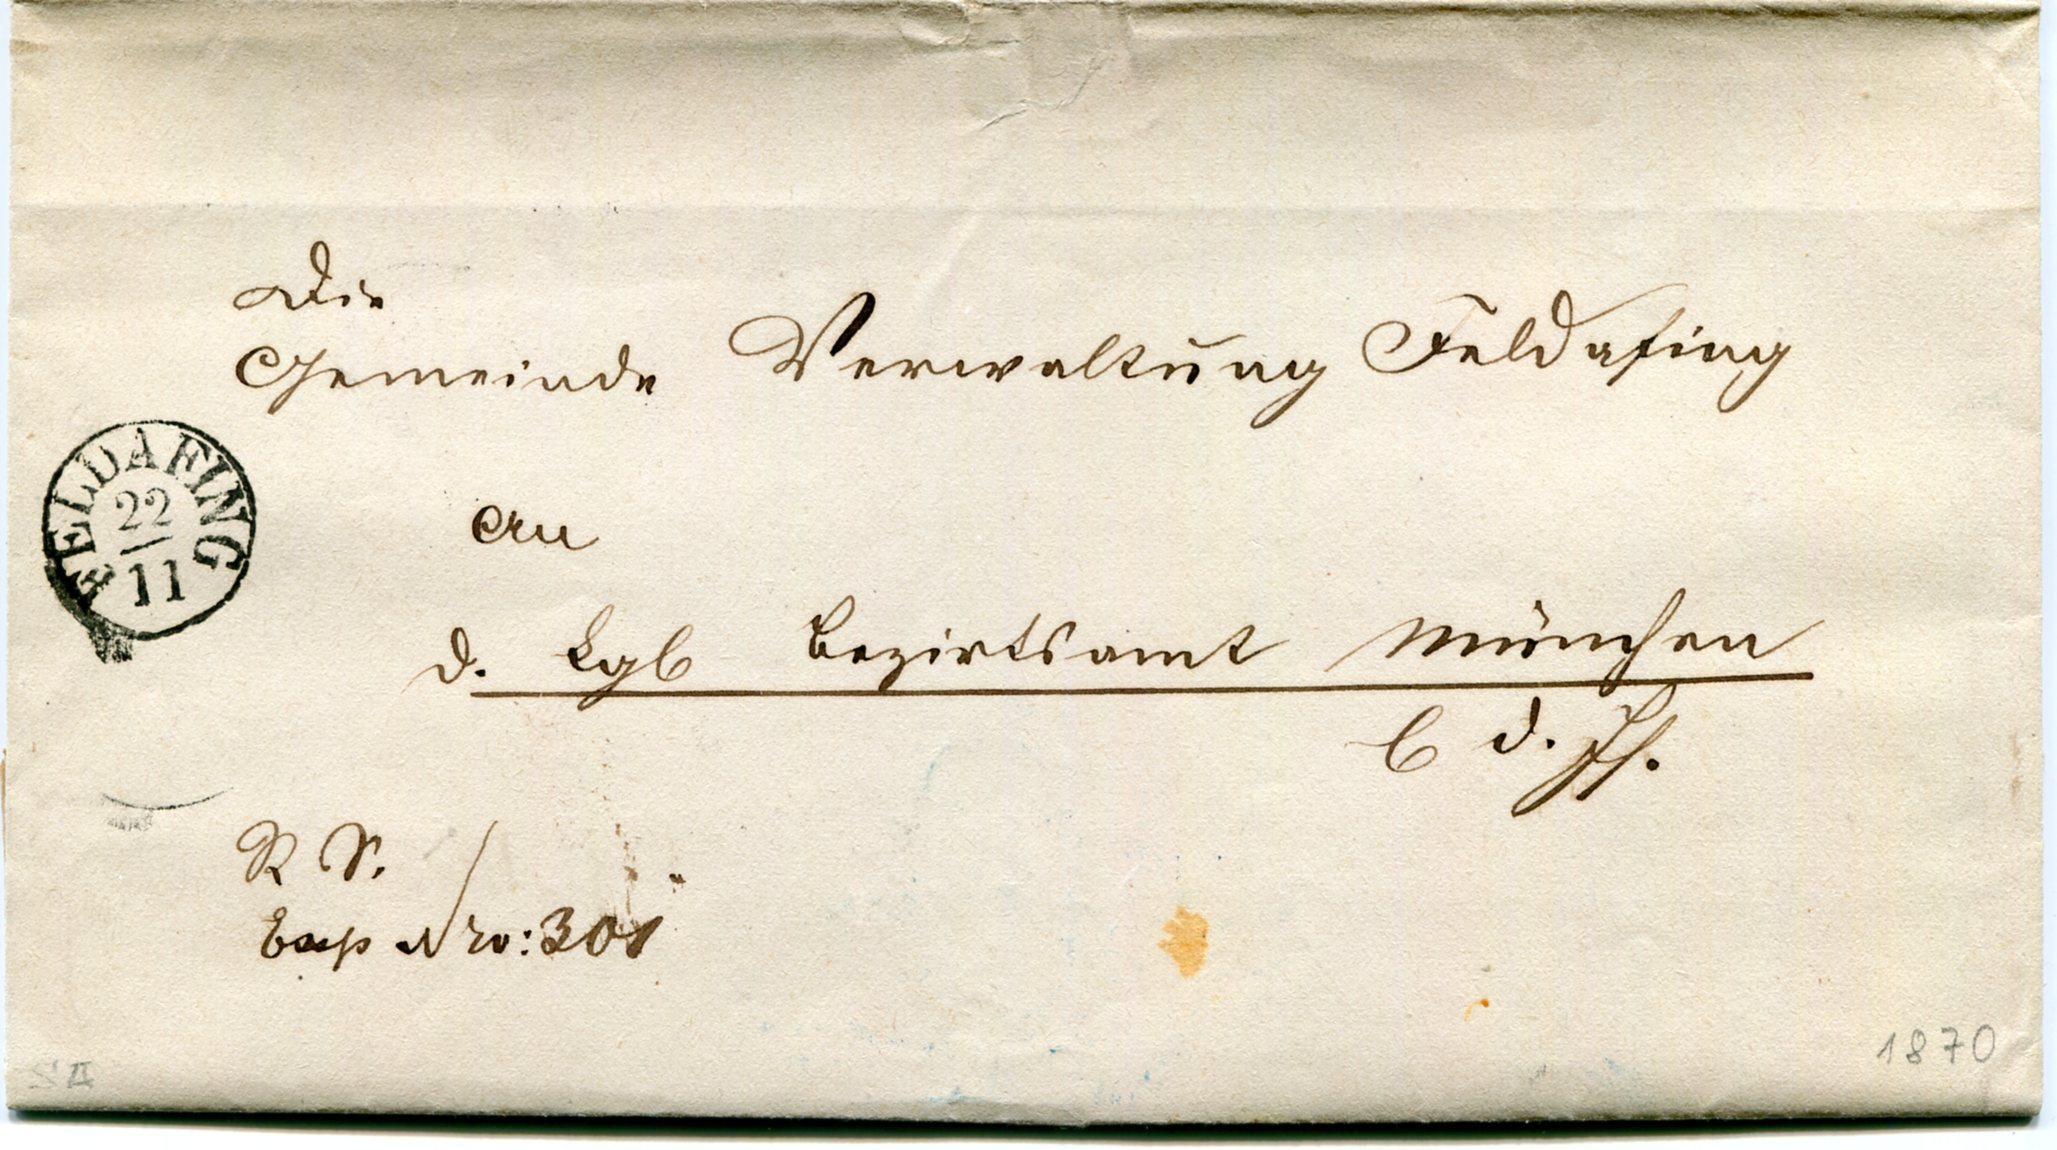 Die
Gemeinde Verwaltung Feldafing
FELDAFING
22
11
An
d. kgl Bezirksamt München
l d. Js.
R S.
Exp Nro: 301
S II
1870